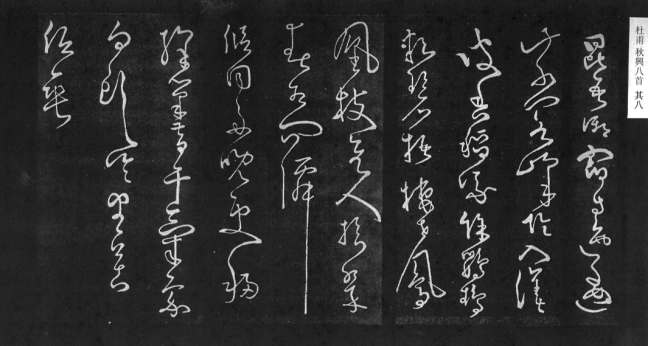 杜甫 秋興八首 其八
昆吾御宿自逶迤
紫閣峰陰入渼
陂香稻啄餘鸚鵡
粒碧梧棲老鳳
凰枝佳人拾翠
春相問僊
侶同舟晚更移
綵筆昔曾干氣象
白頭吟望苦
低垂